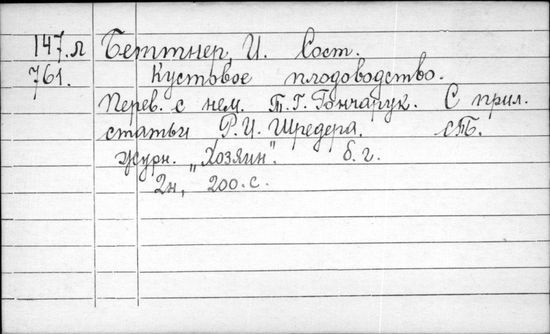 147.л Беттнер И. Сост.
761. Кустовое плодоводство.
Перев. с нем. Т.Г. Гончарук. С прил.
статьи Р.И. Шредера. СПБ.
Журн. „Хозяин". б.г.
2н, 200 с.